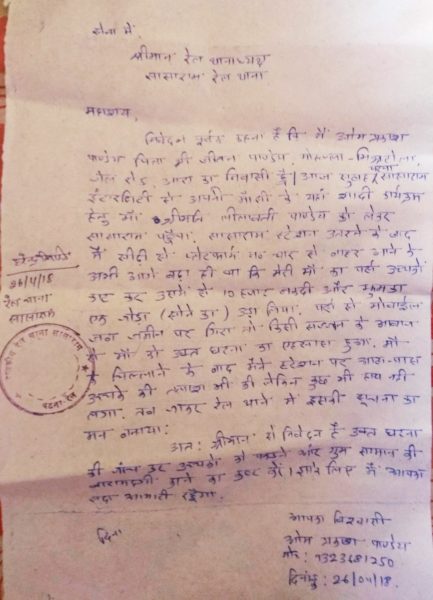 सेवा में
श्रीमान रेल थानाध्यक्ष
सासाराम रेल थाना
महाशय,
निवेदन पूर्वक कहना है कि मैं ओम प्रकाश
पाण्डेय पिता श्री जीवन पाण्डेय, मोहल्ला-
जेल रोड, आरा का निवासी हूँ। आज सुबह पटना सासाराम
इंटरसिटी से अपनी मौसी के यहां शादी
हेतु माँ श्रीमति लीलावती पाण्डेय को लेकर
सासाराम पहुँचा। सासाराम स्टेशन उतरने के बाद
मैं सीढ़ी से प्लेटफार्म न० चार से बाहर आने के
अभी आगे बढ़ा ही था कि मेरी माँ का पर्स उचक्कों
काट कर उसमें से १० हजार नकदी और झुमका
एक जोड़ा (सोने का) उड़ा लिया। पर्स से मोबाईल
जब जमीन पर गिरा तो किसी सज्जन के आवाज
माँ को उक्त घटना का एहसास हुआ। माँ
के चिल्लाने के बाद मैंने स्टेशन पर आस-पास
उचक्के की तलाश भी की लेकिन कुछ भी हाथ नहीं
लगा। तब जाकर रेल थाने में इसकी सूचना का
मन बनाया।
अतः श्रीमान से निवेदन है उक्त घटना
की जाँच कर उचक्कों को पकड़ने और गुम सामान की
बरामदगी कराने का कष्ट करें। इसके लिए मैं आपका
सदा आभारी रहूँगा।
आपका विश्वासी
ओम प्रकाश पाण्डेय
मो०: 9323681250
दिनांक: 26/04/18.
26/4/18
रेल थाना
सासाराम